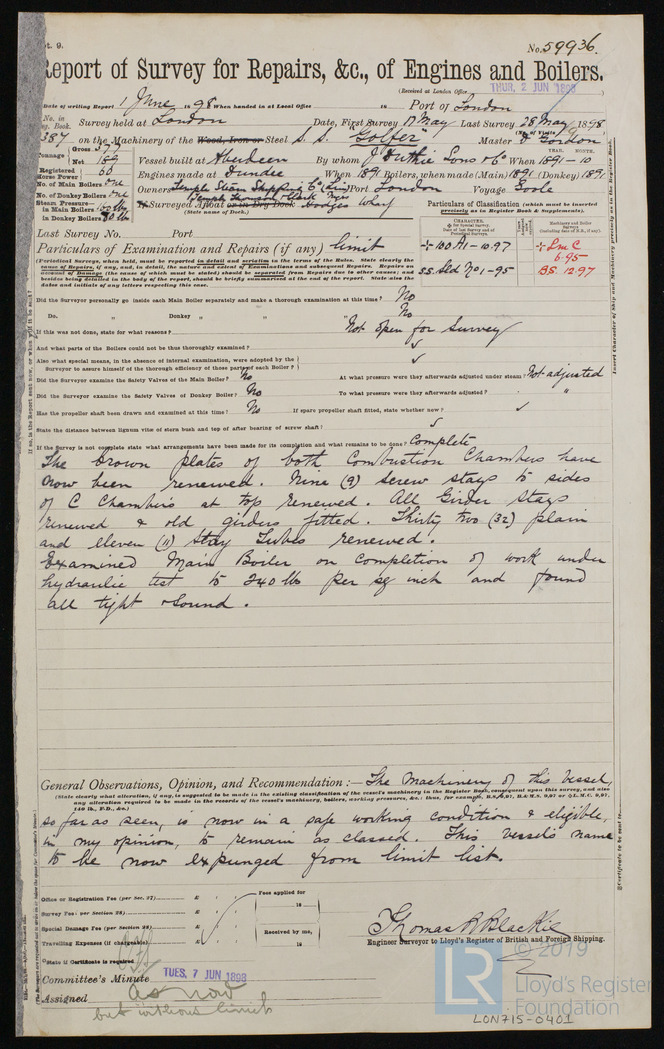 No. 59936.
Report of Survey for Repairs, &c., of Engines and Boilers.
(Received at London Office THUR, 2 JUN 1898 )
Date of writing Report 1 June 1898 When handed in at Local Office 18 Port of London
No. in Survey held at London Date, First Survey 17 May Last Survey 28 May 1898
Reg. Book. (No. of Visits
387 on the Machinery of the Wood, Iron or Steel S. S. "Golfer" Master D Gordon
Tonnage Gross 373 Net 189 YEAR. MONTH.
Vessel built at Aberdeen By whom J Duthie Sons & Co When 1891 — 10
Registered Horse Power 60
Engines made at Dundee When 1891 Boilers, when made (Main) 1891 (Donkey) 1891
No. of Main Boilers One
No. of Donkey Boilers One
Owners Temple Steam Shipping Co (Lim) Port London Voyage Goole
Steam Pressure—
in Main Boilers 160 lb
in Donkey Boilers
If Surveyed Afloat or in Dry Dock wharf
(State name of Dock.)
Particulars of Classification (which must be inserted
precisely as in Register Book & Supplements).
Last Survey No. Port
Particulars of Examination and Repairs (if any) limit
CHARACTER.
Machinery and Boiler Surveys
+ 100 A1 - 10.97
S.S. Sld No 1 - 95
+ LMC
6.95
B.S. 12.97
(Periodical Surveys, when held, must be reported in detail and seriatim in the terms of the Rules. State clearly the
cause of Repairs, if any, and, in detail, the nature and extent of Examinations and subsequent Repairs. Repairs on
account of Damage (the cause of which must be stated) should be separated from Repairs due to other causes; and
besides being detailed in the body of the report, should be briefly summarised at the end of the report. State also the
dates and initials of any letters respecting this case.
Did the Surveyor personally go inside each Main Boiler separately and make a thorough examination at this time? No
Do. „ Donkey „ „ „ No
If this was not done, state for what reasons? Not open for Survey
And what parts of the Boilers could not be thus thoroughly examined? ✓
Also what special means, in the absence of internal examination, were adopted by the
Surveyor to assure himself of the thorough efficiency of those parts of each Boiler? ✓
Did the Surveyor examine the Safety Valves of the Main Boiler? No At what pressure were they afterwards adjusted under steam? Not adjusted
Did the Surveyor examine the Safety Valves of Donkey Boiler? No To what pressure were they afterwards adjusted? „
Has the propeller shaft been drawn and examined at this time? No If spare propeller shaft fitted, state whether new? ✓
State the distance between lignum vitæ of stern bush and top of after bearing of screw shaft? ✓
If the Survey is not complete state what arrangements have been made for its completion and what remains to be done? Complete
The Crown plates of both Combustion Chambers have
now been renewed. Nine (9) screw stays to sides
of C Chambers at top renewed. All Girder Stays
renewed & old girders fitted. Thirty two (32) plain
and eleven (11) Stay Tubes renewed.
Examined Main Boiler on completion of work under
hydraulic test to 240 lb per sq inch and found
all tight & sound.
General Observations, Opinion, and Recommendation :— The Machinery of this Vessel,
(State clearly what alteration, if any, is suggested to be made in the existing classification of the vessel's machinery in the Register Book, consequent upon this survey, and also
any alteration required to be made in the records of the vessel's machinery, boilers, working pressures, &c.
so far as seen, is now in a safe working condition & eligible,
in my opinion, to remain as classed. This Vessel's name
to be now expunged from limit list.
Office or Registration Fee (per Sec. 27) £ Fees applied for
Survey Fee (per Section 28) £ 18
Special Damage Fee (per Section 28) £ Received by me,
Travelling Expenses (if chargeable) £ 18
Thomas R Blackie
Engineer Surveyor to Lloyd's Register of British and Foreign Shipping.
State if Certificate is required
Committee's Minute TUES, 7 JUN 1898
Assigned as now
but without limit
© 2019
LR
Lloyd's Register
Foundation
LON715-0401